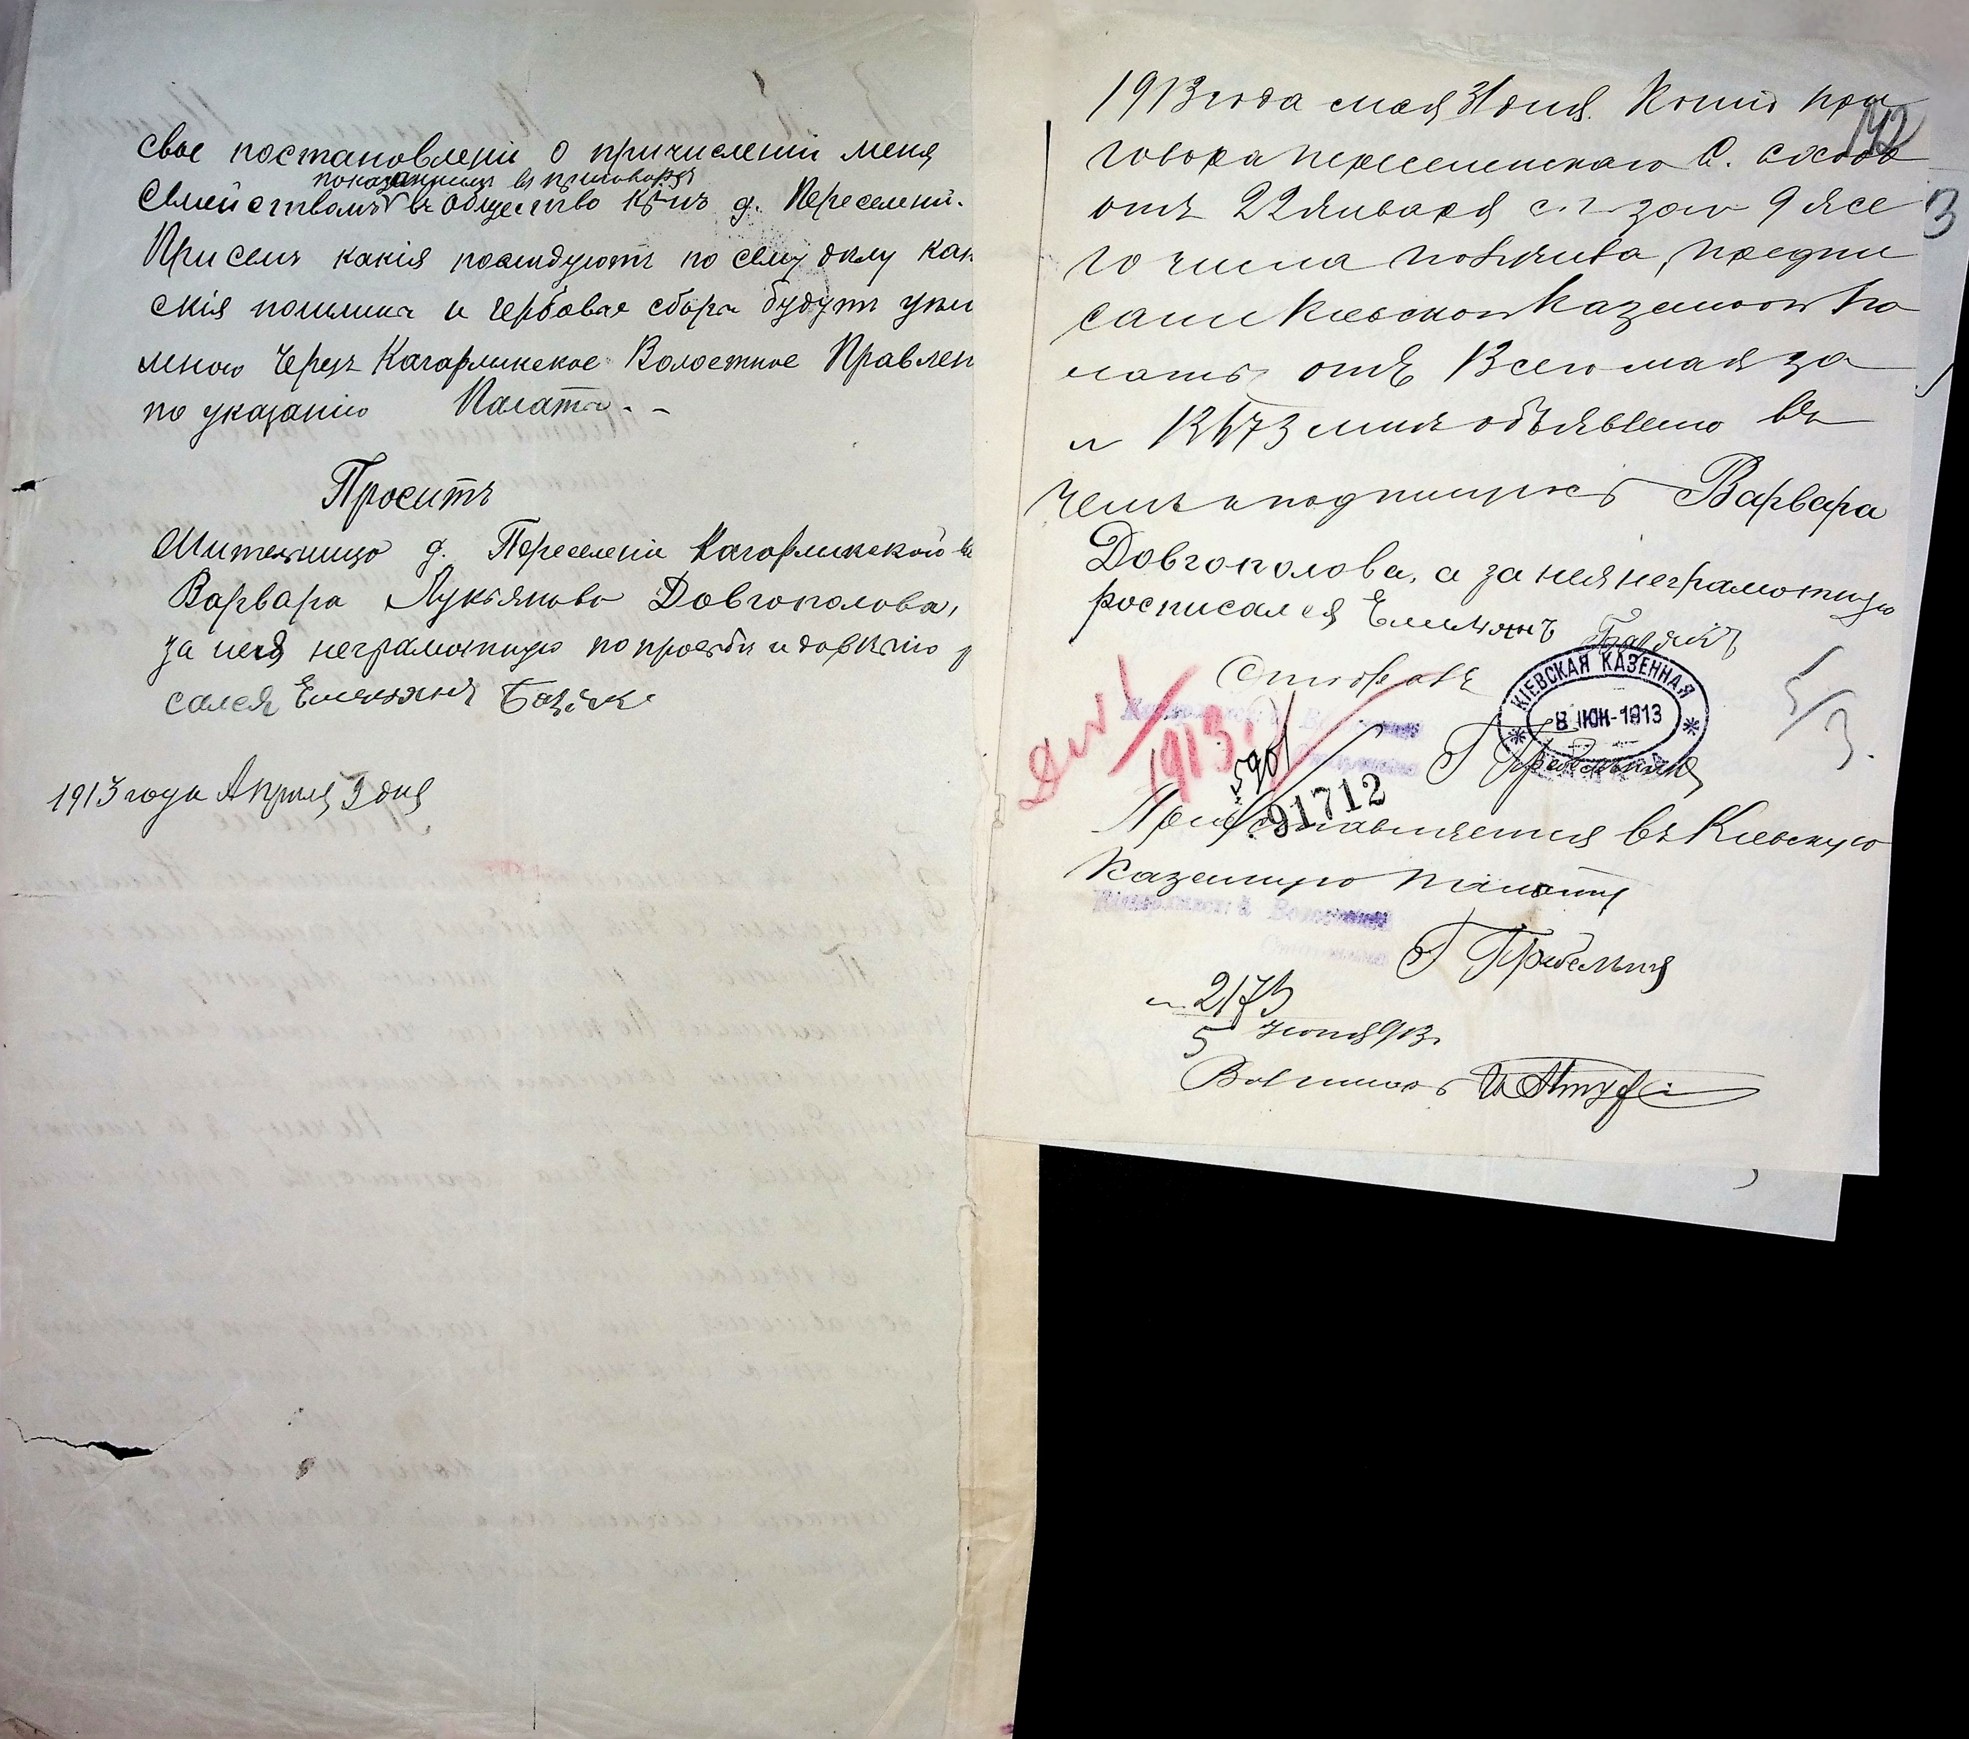 свое постановленіи о причисленіи меня
показаннымъ въ приговорѣ
Семействомъ въ общество кр-нъ д. Переселеніи.
При семъ какія послѣдуютъ по сему дѣлу кан
скія пошлина и гербовая сбора будутъ упл
мною черезъ Кагарликское Волостное Правлен
по указанію Палаты. -
Проситъ
Жительница д. Переселеніи Кагарликской в
Варвара Лукьянова Довгополова,
за нея неграмотную по просьбѣ и довѣрію р
сался Емельянъ Базѣкъ
1913 года Апрѣля 9 дня
1913 года мая 31 дня. Копію при
142
говора переселенскаго С. схода
отъ 22 января с. г. за № 9 я се
3
го числа получила, предпи
саніе Кіевской Казенной Па
латы отъ 13 сего мая за
№ 12673 мнѣ объявлено въ
чемъ и подпишусь Варвара
Довгополова, а за нея неграмотную
росписался Емельянъ
КІЕВСКАЯ КАЗЕННАЯ
8 ІЮН-1913
5/3.
1913
91712
Представляется въ Кіевскую
Казенную Палату
№ 2173
5 Іюня 913 г.